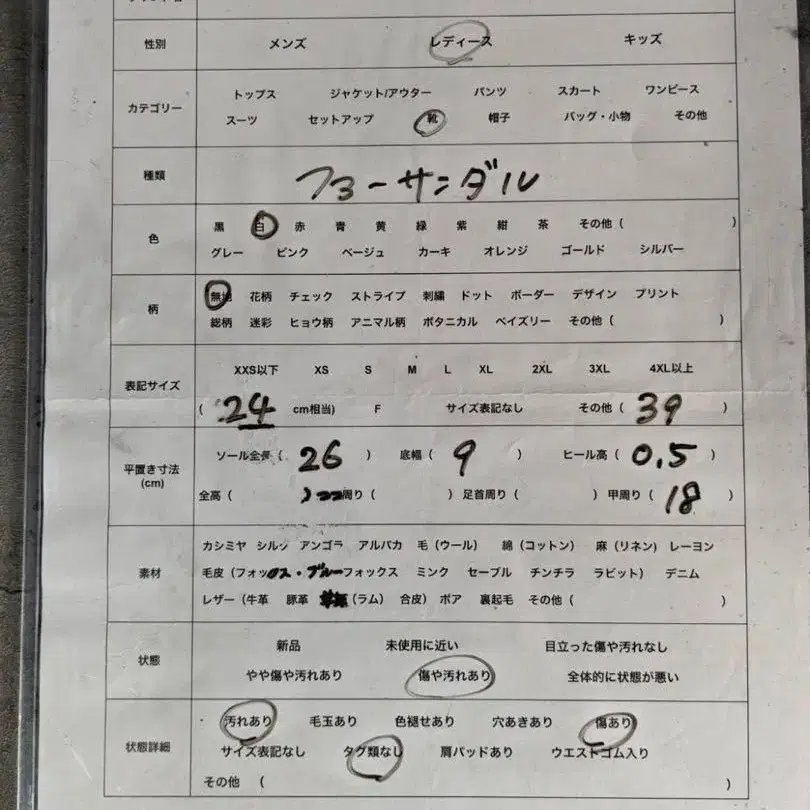 性別 メンズ レディース キッズ
カテゴリー
トップス ジャケット/アウター パンツ スカート ワンピース
スーツ セットアップ 靴 帽子 バッグ・小物 その他
種類 ファーサンダル
色
黒 白 赤 青 黄 緑 紫 紺 茶 その他 ( )
グレー ピンク ベージュ カーキ オレンジ ゴールド シルバー
柄
無地 花柄 チェック ストライプ 刺繍 ドット ボーダー デザイン プリント
総柄 迷彩 ヒョウ柄 アニマル柄 ボタニカル ペイズリー その他 ( )
表記サイズ
XXS以下 XS S M L XL 2XL 3XL 4XL以上
( 24 cm相当) F サイズ表記なし その他 ( 39 )
平置き寸法
(cm)
ソール全長 ( 26 ) 底幅 ( 9 ) ヒール高 ( 0.5 )
全高 ( ) 周り ( ) 足首周り ( ) 甲周り ( 18 )
素材
カシミヤ シルク アンゴラ アルパカ 毛 (ウール) 綿 (コットン) 麻 (リネン) レーヨン
毛皮 (フォックス・ブルーフォックス ミンク セーブル チンチラ ラビット) デニム
レザー (牛革 豚革 (ラム) 合皮) ボア 裏起毛 その他 ( )
状態
新品 未使用に近い 目立った傷や汚れなし
やや傷や汚れあり 傷や汚れあり 全体的に状態が悪い
状態詳細
汚れあり 毛玉あり 色褪せあり 穴あきあり 傷あり
サイズ表記なし タグ類なし 肩パッドあり ウエストゴム入り
その他 ( )